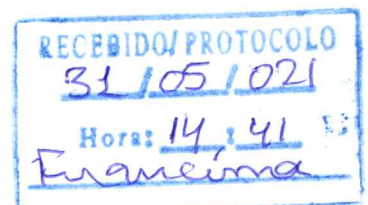 RECEBIDO/PROTOCOLO
31/05/021
Hora: 14:41
Francima